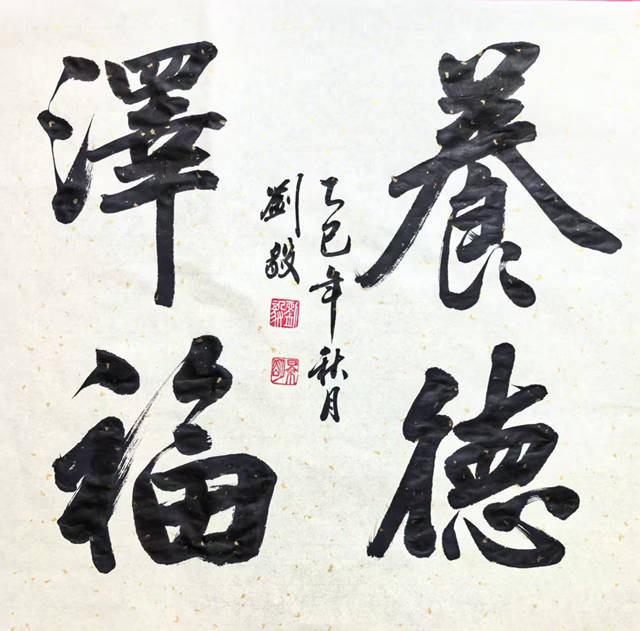 養德
澤福
乙巳年秋月
劉毅